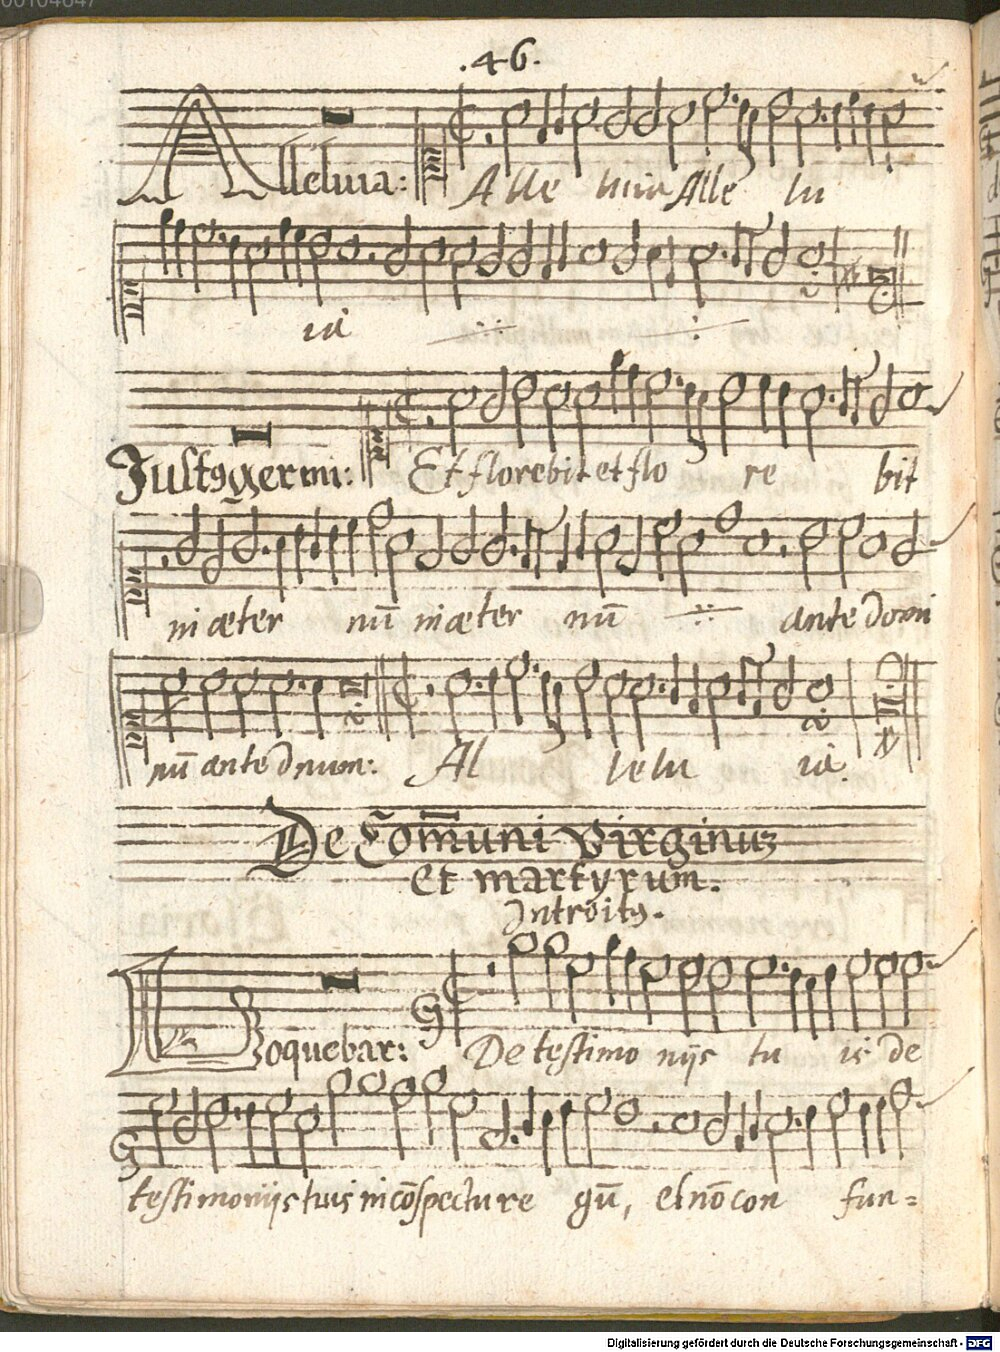 .46.
Alleluia: Alle luia Alle lu
ia
Justꝯ germi: Et florebit et flo re bit
in æter nū in æter nū ante Domi
nū ante Dnum: Al lelu ia.
De Com̄uni Virginuȝ
et martyrum.
Introitꝯ.
Loquebar: De testimo nijs tu is de
testimonijs tuis in cōspectu re gū, et nō con fun=
Digitalisierung gefördert durch die Deutsche Forschungsgemeinschaft - DFG